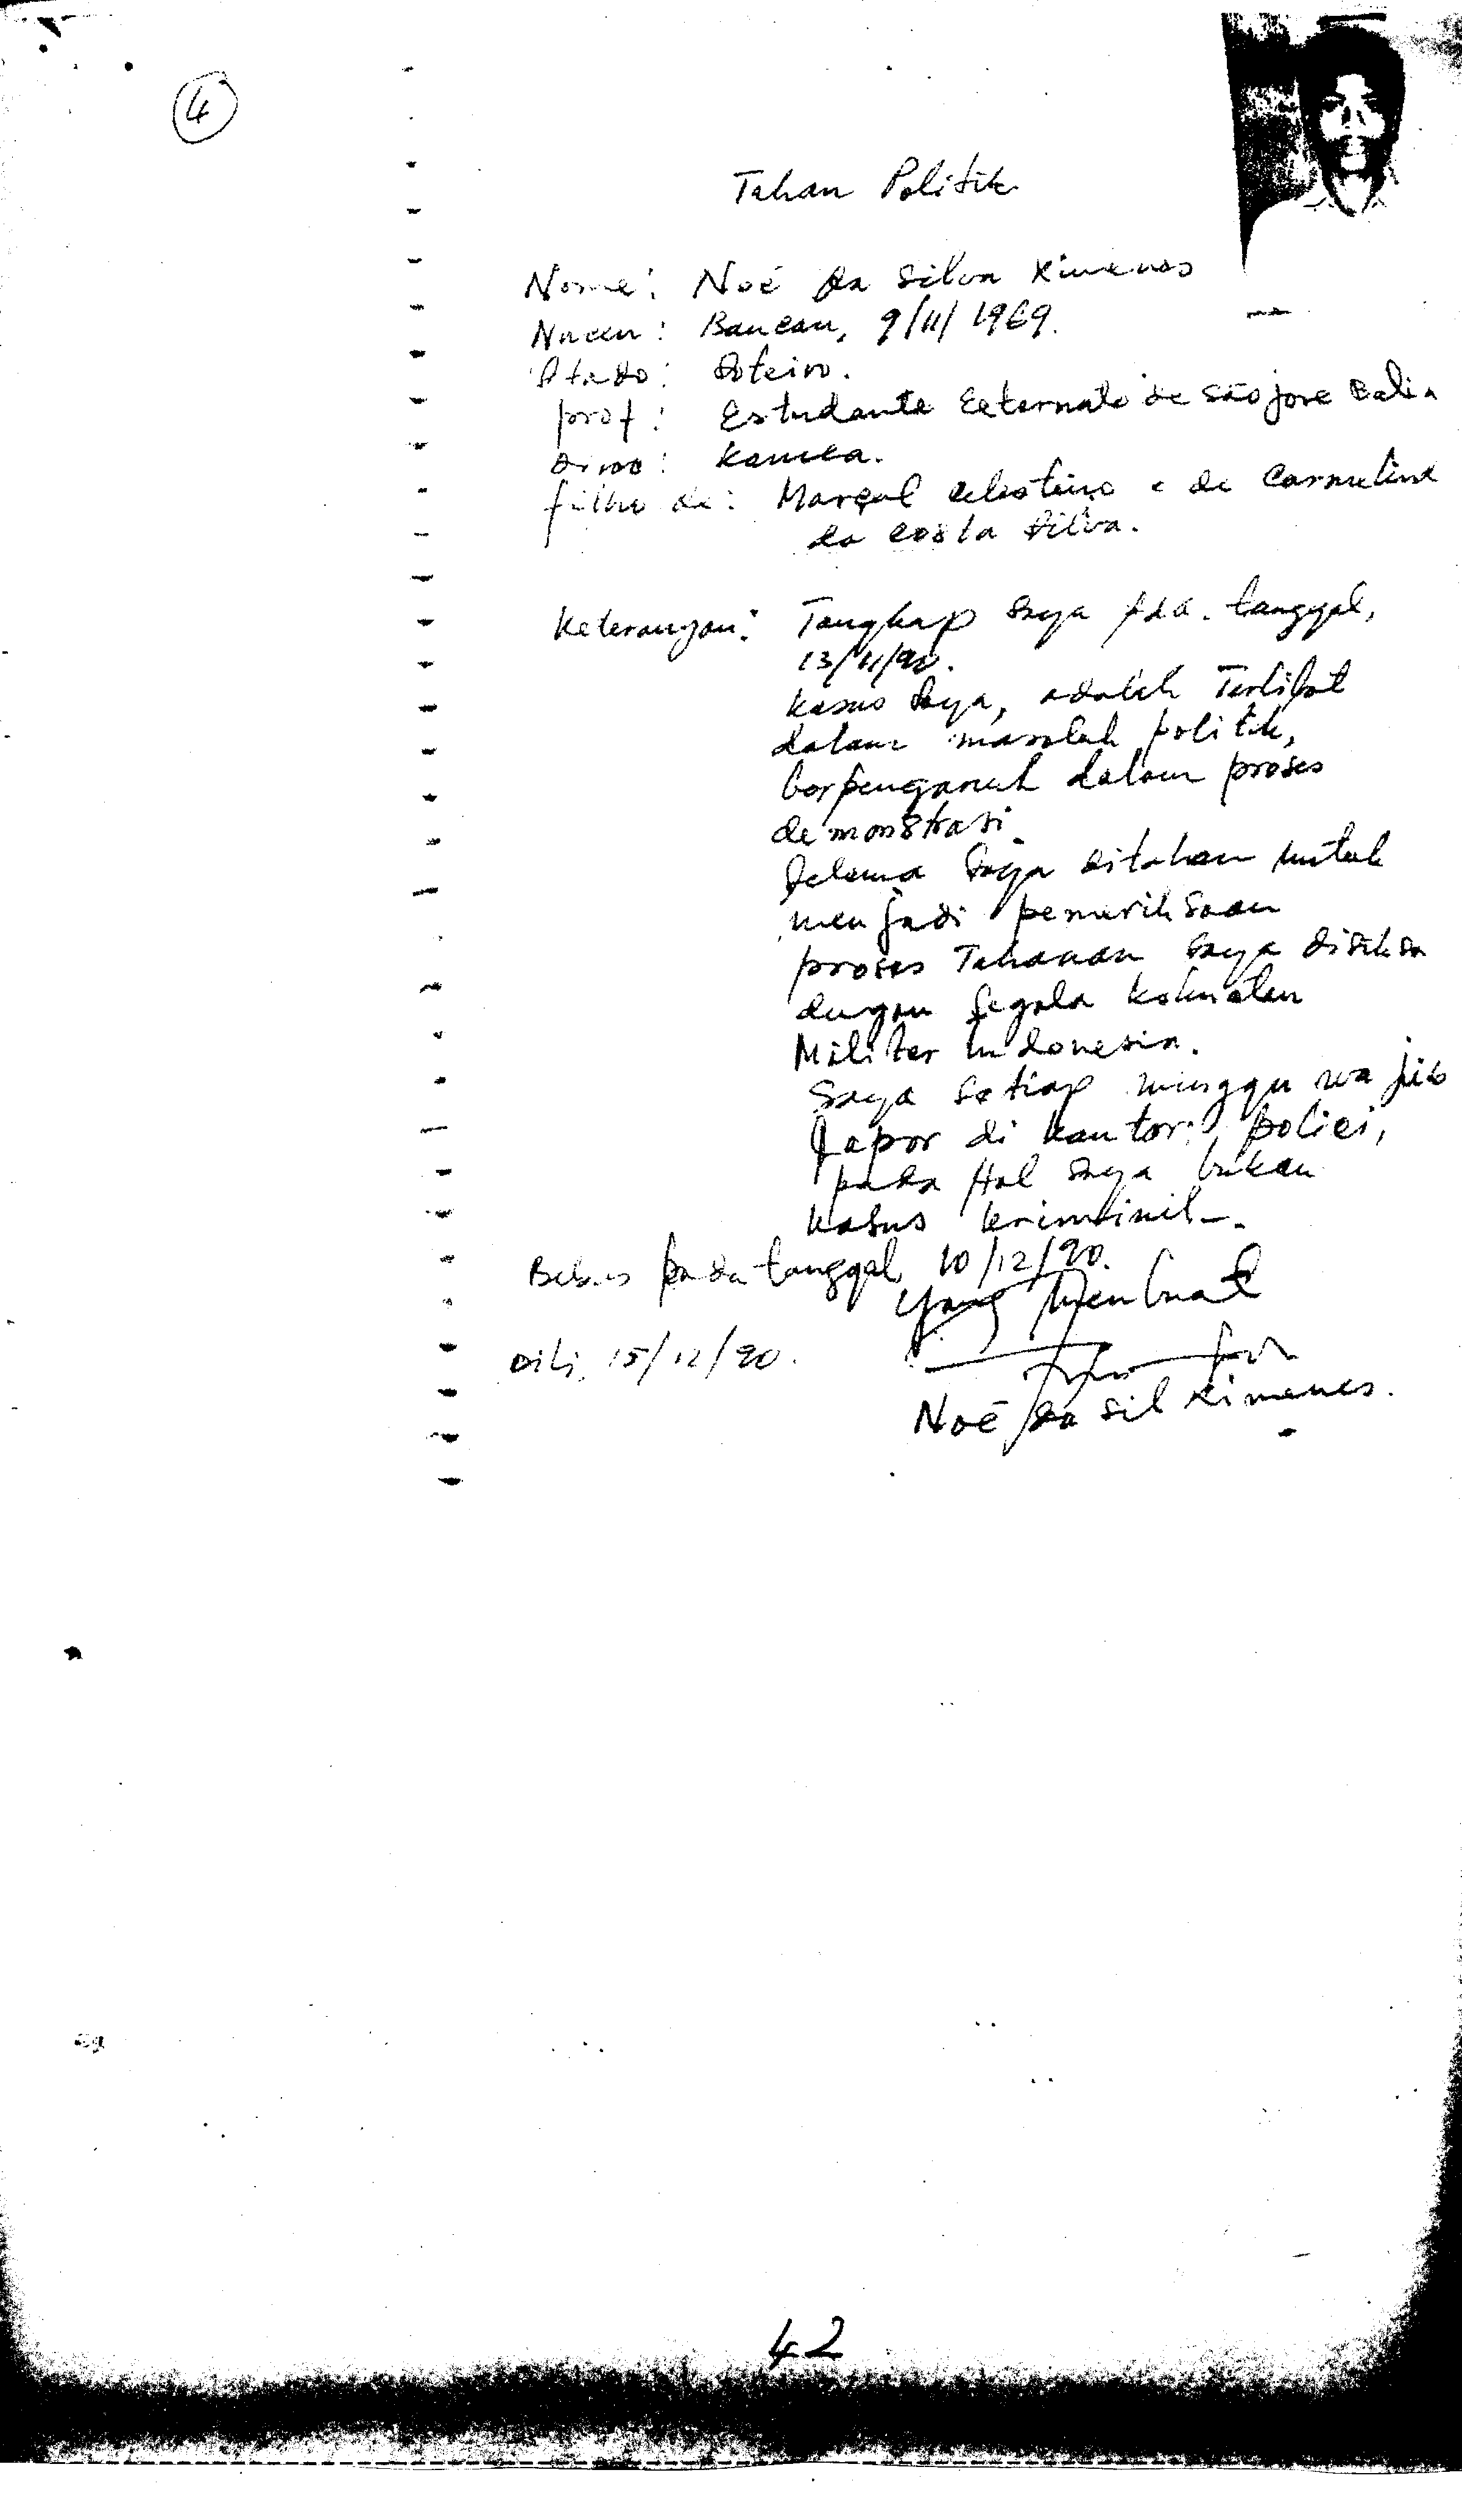 4
Tahan Politik
Nome: Noé da Silva Ximenes
Naceu: Baucau, 9/11/1969.
Stado: Soteiro.
prof: Estudante Externato de São jose Balia
: Kamea.
filho de: Marçal celestino e de Carmelina
da costa Silva.
Keterangan: Tangkap saya pda. tanggal,
13/11/90.
kasus saya, adalah Terlibat
dalam masalah politik,
berpengaruh dalam proses
demonstrasi.
Selama saya ditahan untuk
menjadi pemeriksaan
proses Tahanan saya disiksa
dengan segala kekuatan
Militer Indonesia.
Saya setiap minggu wajib
lapor di kantor polici,
pada Hal saya bukan
kasus kriminil-.
Bebas pada tanggal, 10/12/90.
Yang Membuat
Dili, 15/12/90.
Noé da sil Ximenes.
42